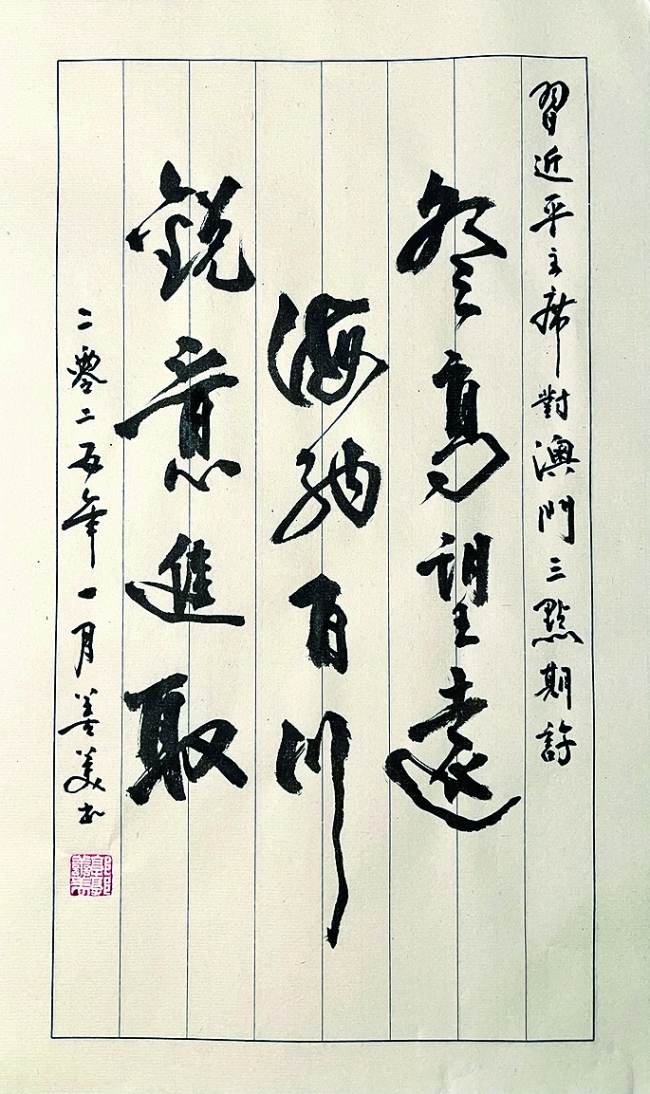 習近平主席對澳門三點期許
登高望遠
海納百川
銳意進取
二零二五年一月善美書